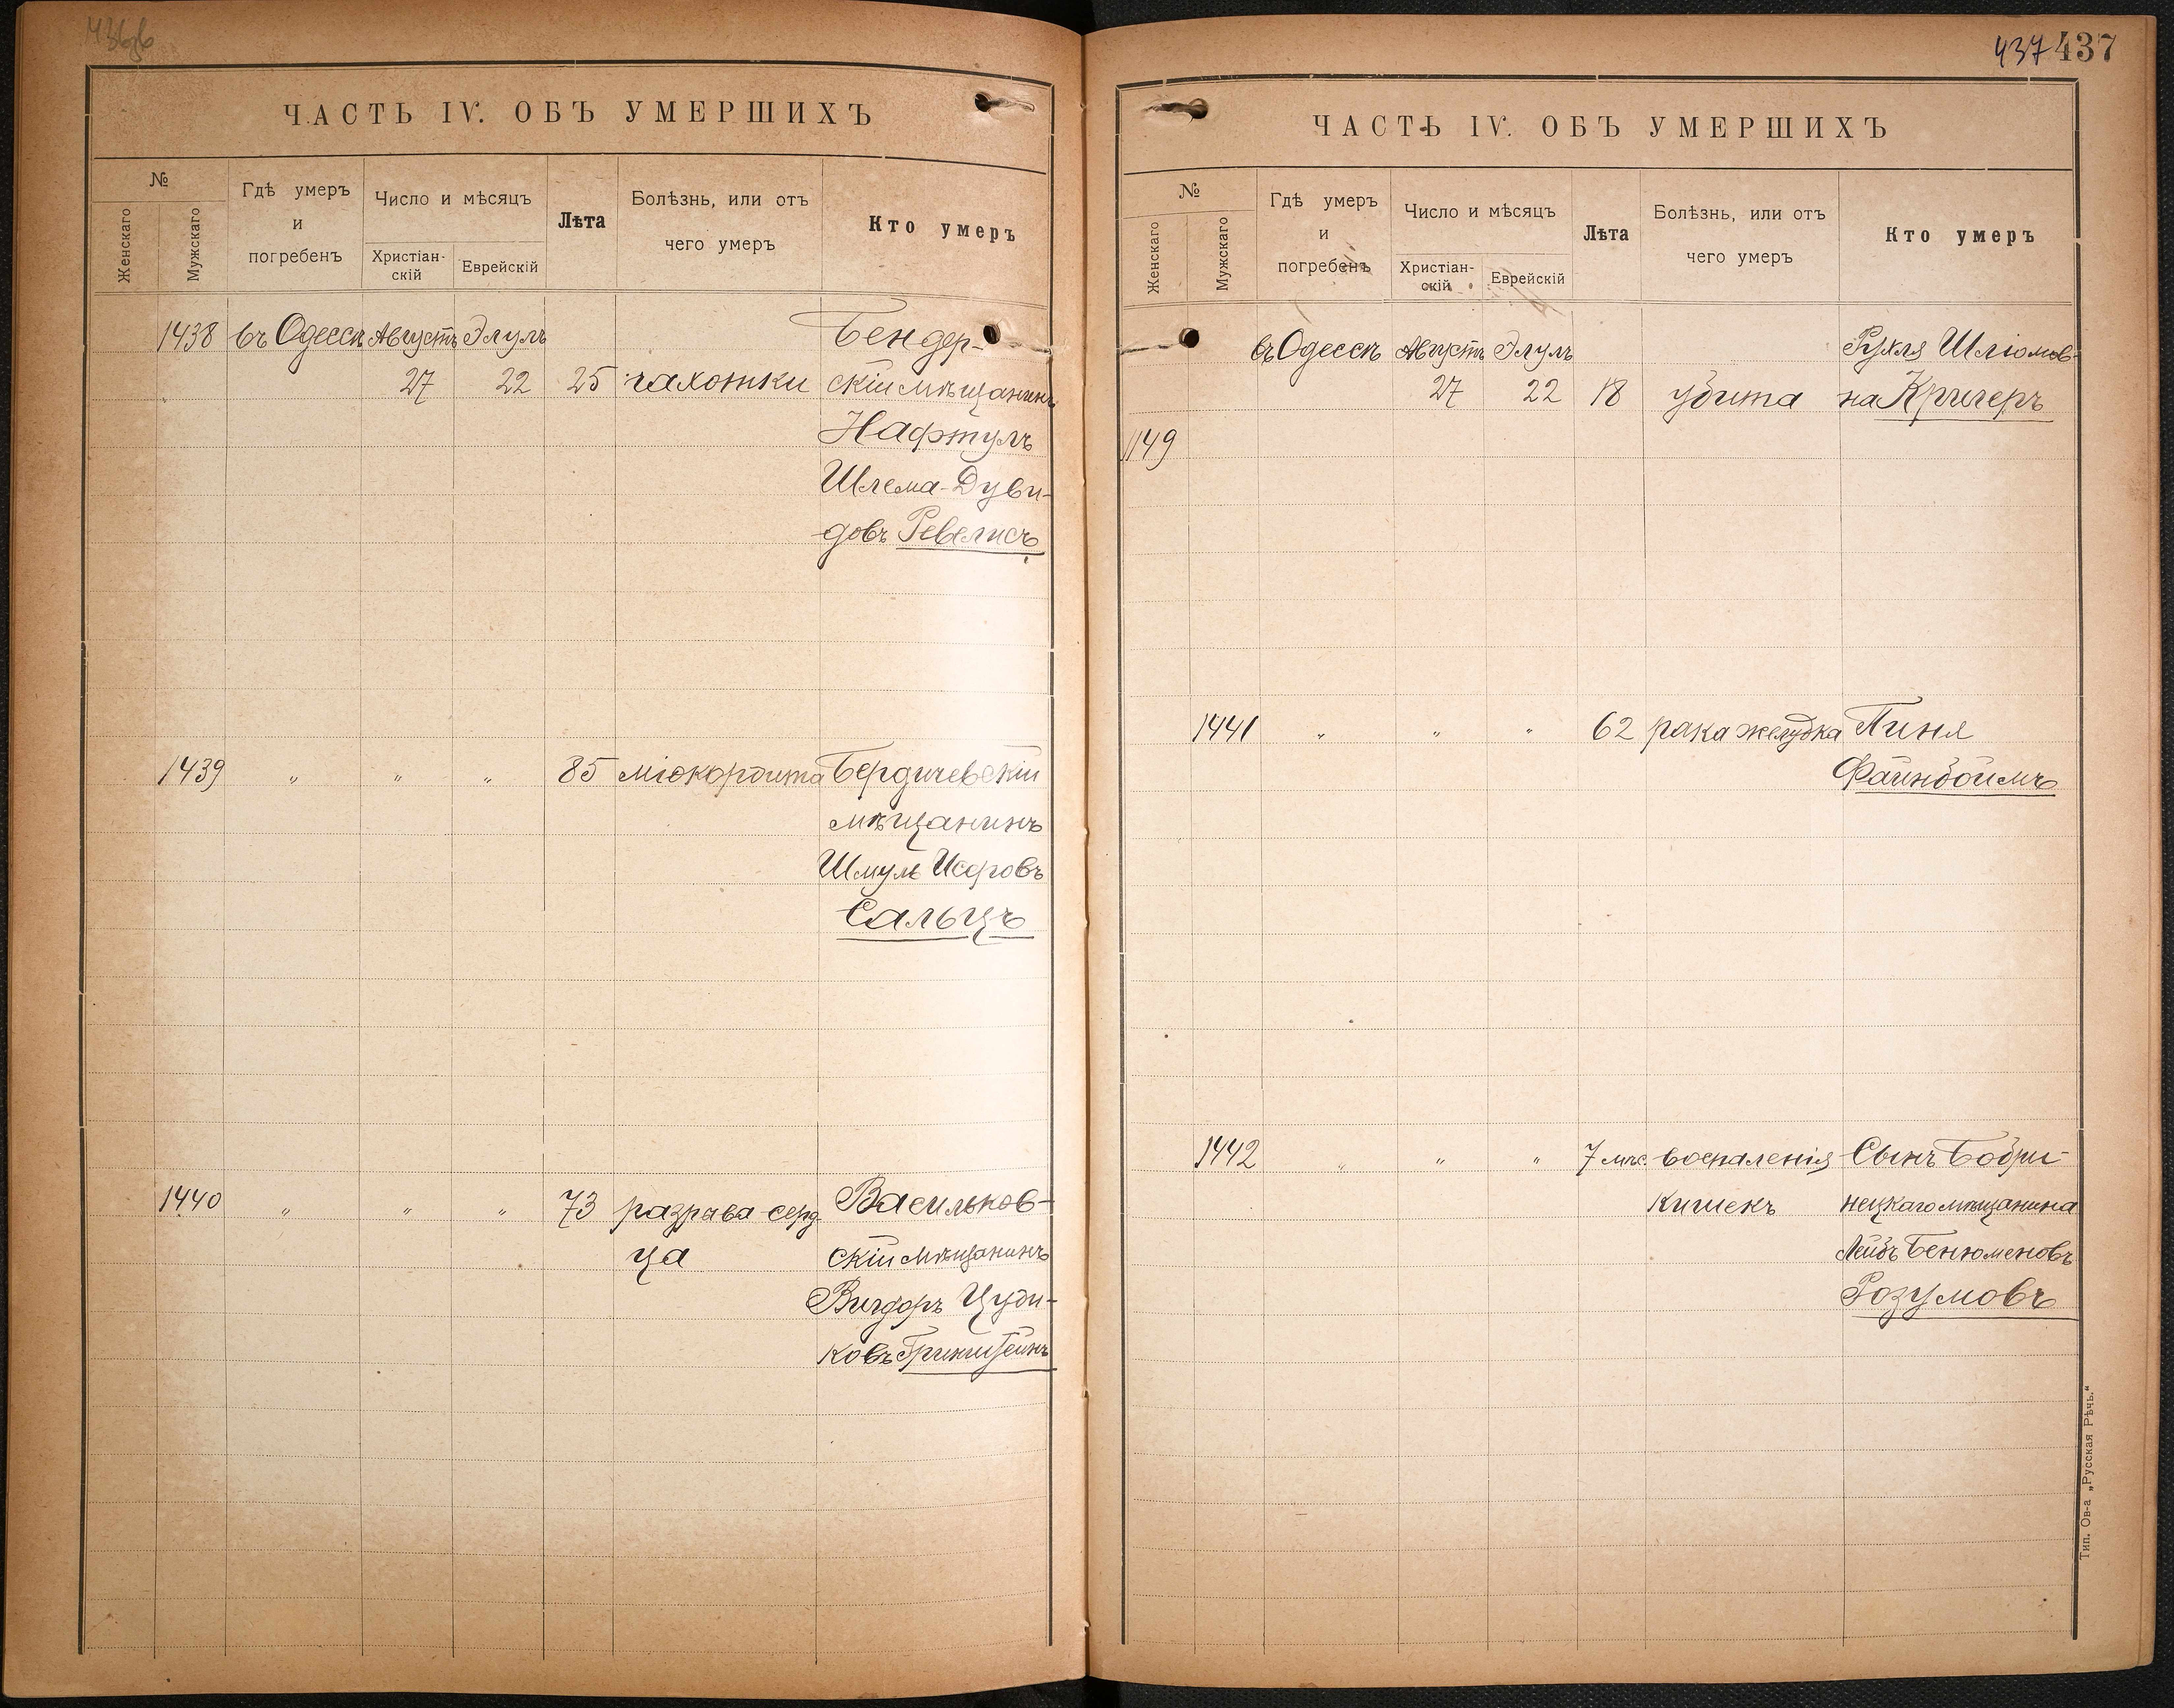 436об
ЧАСТЬ IV. ОБЪ УМЕРШИХЪ
№
Женскаго
Мужскаго
Гдѣ умеръ
и
погребенъ
Число и мѣсяцъ
Христіан-
скій
Еврейскій
Лѣта
Болѣзнь, или отъ
чего умеръ
Кто умеръ
1438 въ Одессѣ Августъ Элулъ Бендер-
27 22 25 чахотки скій мѣщанинъ
Нафтулъ
Шлема-Дуви-
довъ Ревелисъ
1439 " " " 85 міокордита Бердичевскій
мѣщанинъ
Шмуль Исровъ
Сальцъ
1440 " " " 73 разрава серд Васильков-
ца скій мѣщанинъ
Вигдоръ Цуди-
ковъ Гринштейнъ
437 437
ЧАСТЬ IV. ОБЪ УМЕРШИХЪ
№
Женскаго
Мужскаго
Гдѣ умеръ
и
погребенъ
Число и мѣсяцъ
Христіан-
скій
Еврейскій
Лѣта
Болѣзнь, или отъ
чего умеръ
Кто умеръ
въ Одессѣ Августъ Элулъ Рухля Шліомов-
27 22 18 убита на Кригеръ
1149
1441 " " " 62 рака желудка Пиня
Файнбоймъ
1442 " " " 7 мѣс. воспаленія Сынъ Бобри-
кишекъ нецкаго мѣщанина
Лейбъ Бенюменовъ
Розумовъ
Тип. Ов-а „Русская Рѣчь."